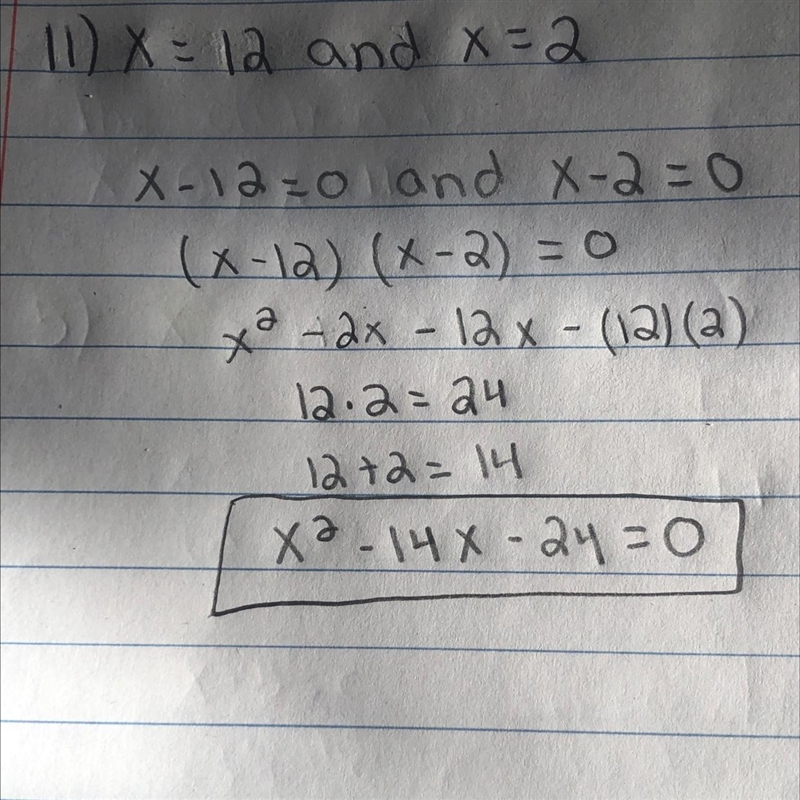 11) x = 12 and x = 2
x - 12 = 0 and x - 2 = 0
(x - 12) (x - 2) = 0
x² - 2x - 12x - (12)(2)
12 · 2 = 24
12 + 2 = 14
x² - 14x - 24 = 0